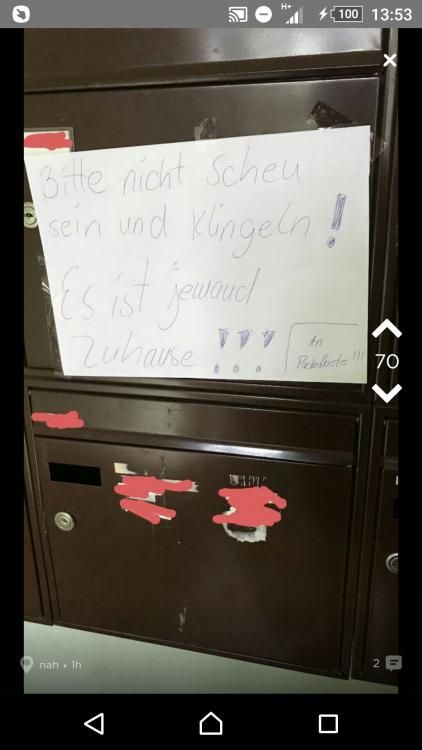 H+
100
13:53
Bitte nicht scheu
sein und klingeln !
Es ist jemand
Zuhause !!!
An
Paketbote !!!
70
nah • 1h
2